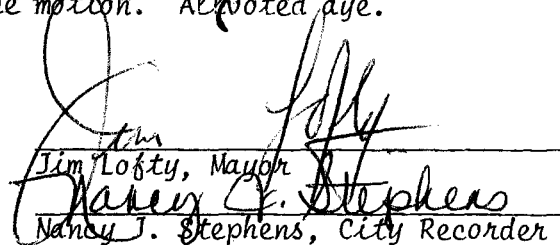 e motion. All voted aye.
Jim Lofty
Jim Lofty, Mayor
Nancy J. Stephens
Nancy J. Stephens, City Recorder